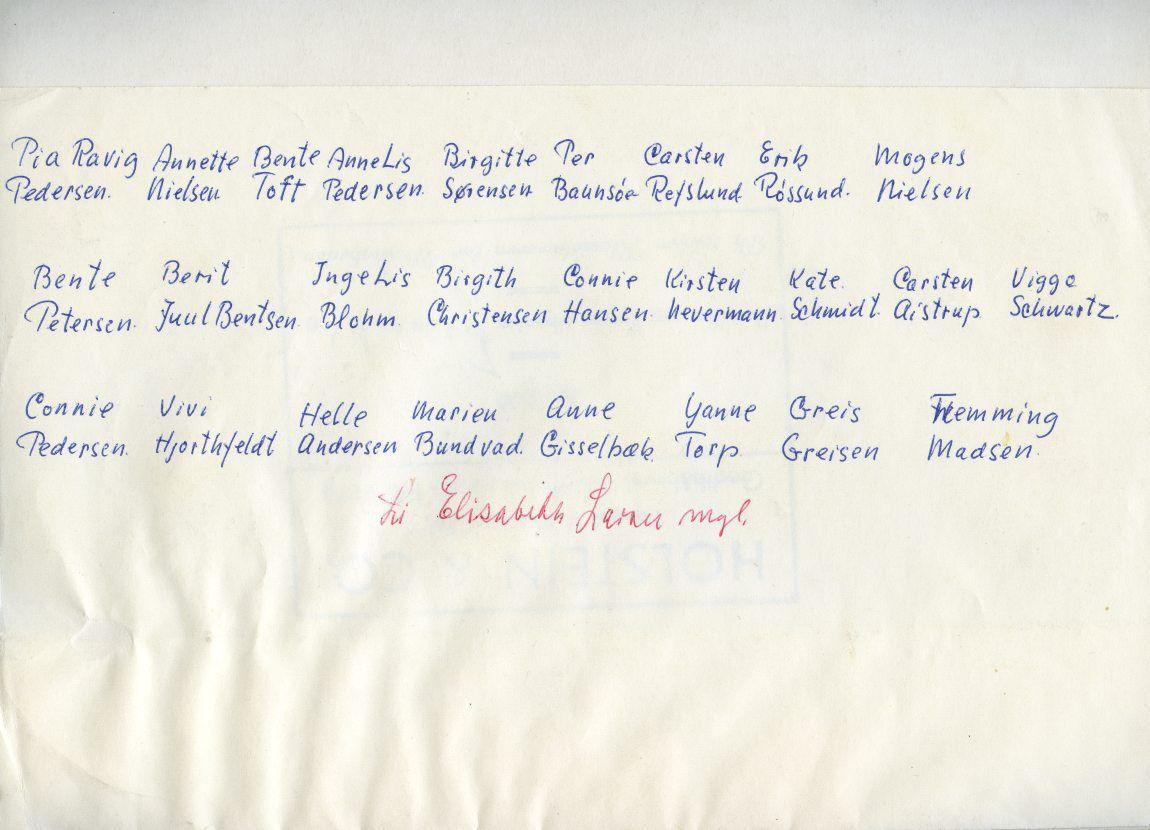 Pia Ravig Annette Bente AnneLis Birgitte Per Carsten Erik Mogens
Pedersen. Nielsen Toft Pedersen. Sørensen Baunsøe Rejslund Róssund. Nielsen
Bente Berit IngeLis Birgith Connie Kirsten Kate. Carsten Viggo
Petersen. Juul Bentsen. Blohm. Christensen Hansen. hevermann. Schmidt. Aistrup Schwartz.
Connie Vivi Helle Marien Anne Yanne Greis Flemming
Pedersen. Hjorthfeldt Andersen Bundvad. Gisselbæk. Torp Greisen Madsen.
Elisabeth mgl.
HOLSTEIN & CO